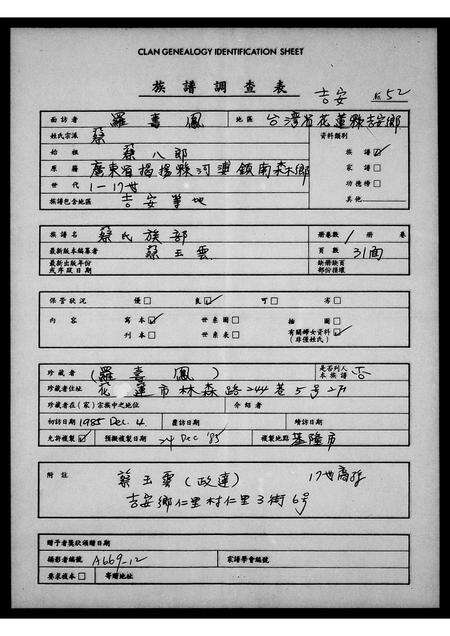 CLAN GENEALOGY IDENTIFICATION SHEET
族譜調查表
吉安 № 52
面訪者 羅壽鳳 地區 台灣省花蓮縣吉安鄉
姓氏宗派 蔡 資料類別
始祖 蔡八郎 族譜☑
原籍 廣東省揭揚縣河婆鎮南森鄉 家譜□
世代 1-17世 功德榜□
族譜包含地區 吉安等地 其他
族譜名 蔡氏族部 冊卷數 1冊 卷
最新版本編纂者 蔡玉雲 頁數 31面
最新出版年份或序跋日期 缺冊缺頁部份損壞
保管狀況 優□ 良☑ 可□ 劣□
內容 寫本☑ 世系圖□ 插圖□
刊本□ 世系表□ 有關婦女資料(非僅姓氏)☑
珍藏者 (羅壽鳳) 是否列入本族譜 否
珍藏者住址 花蓮市林森路244巷5號2F
珍藏者在(家)宗族中之地位 介紹者
初訪日期 1985 Dec. 4 覆訪日期 續訪日期
允許複製☑ 預擬複製日期 24 Dec '85 複製地點 基隆市
附註 蔡玉雲(政連) 17世裔孫
吉安鄉仁里村仁里3街6号
贈予者獎狀頒贈日期
攝影者編號 A669-12 家譜學會編號
要求複本□ 寄贈地址